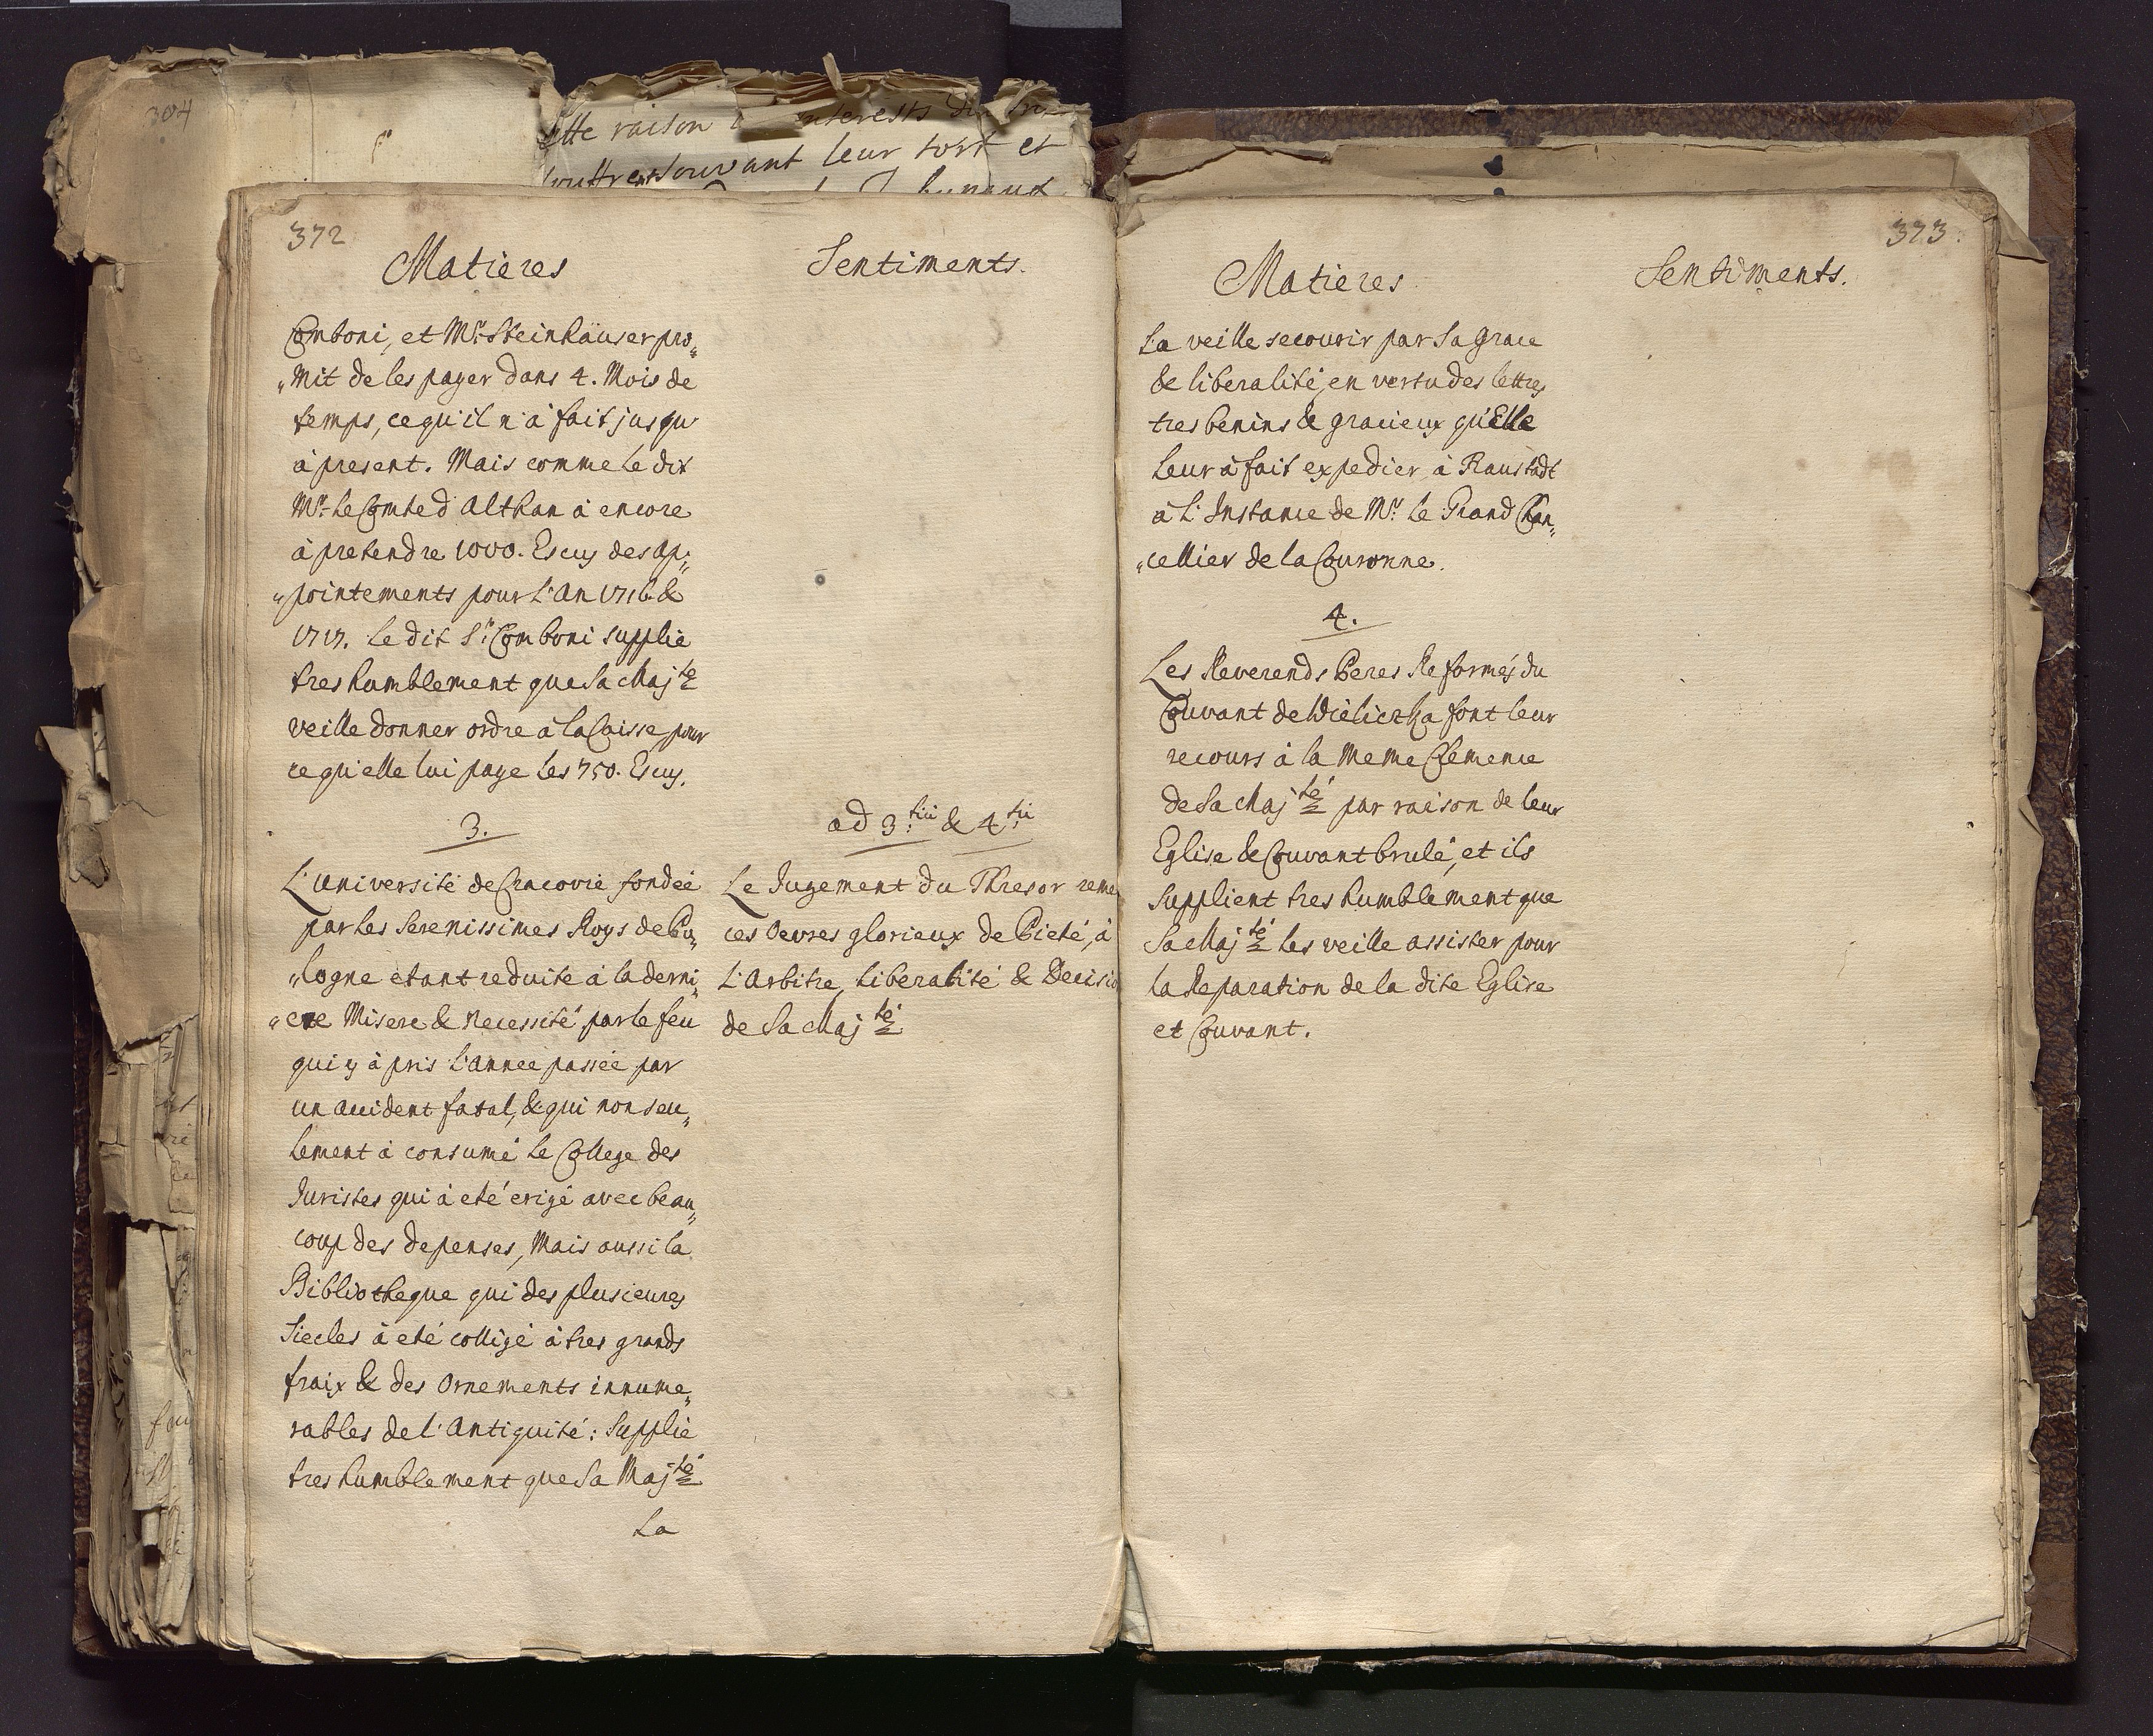 304
cette raison
souvant leur tort et
372
Matieres
Comboni, et Mr. Steinhäuser pro„
„mit de les payer dans 4. Mois de
temps, ce qu'il n'à fait jusqu'
à present. Mais comme le dit
Mr. le Comte d'Althan à encore
à pretendre 1000. Escus des ap„
„pointements pour L'An 1716. &
1717. le dit Sr. Comboni supplie
tres humblement que Sa Maj.té
veille donner ordre à la Caisse pour
ce qu'elle lui paye les 750. Escus.
3.
L'Université de Cracovie fondée
par les Serenissimes Roys de Po„
„logne etant reduite à la derni„
„ere Misere & Necessité par le feu
qui y à pris l'année passée par
un accident fatal, & qui non seu„
lement à consumé le College des
Juristes qui à eté erigé avec beau„
coup des depenses, Mais aussi la
Bibliotheque qui des plusieures
Siecles à eté colligé à tres grands
fraix & des Ornements innume„
rables de l'Antiquité: Supplie
tres humblement que Sa Maj.té
La
Sentiments.
ad 3.tii & 4.tii
Le Jugement du Thresor reme
ces Oevres glorieux de Pieté, à
L'Arbitre, Liberalité & Decisio
de Sa Maj.té
373.
Matieres
La veille secourir par Sa Grace
& liberalité, en vertu des lettres
tres benins & gracieux qu'Elle
leur à fait expedier à Raustadt
à L'Instance de Mr. le Grand Chan„
„cellier de la Couronne.
4.
Les Reverends Peres Reformés du
Couvant de Wieliczka font leur
recours à la meme Clemence
de Sa Maj.té par raison de leur
Eglise & Couvant brulé, et ils
supplient tres humblement que
Sa Maj.té les veille assister pour
la Reparation de la dite Eglise
et Couvant.
Sentiments.